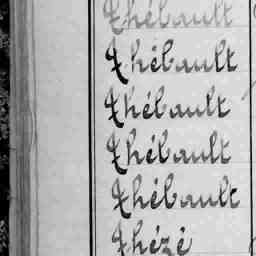 Thébault
Thébault
Thébault
Thébault
Thébault
Thézé